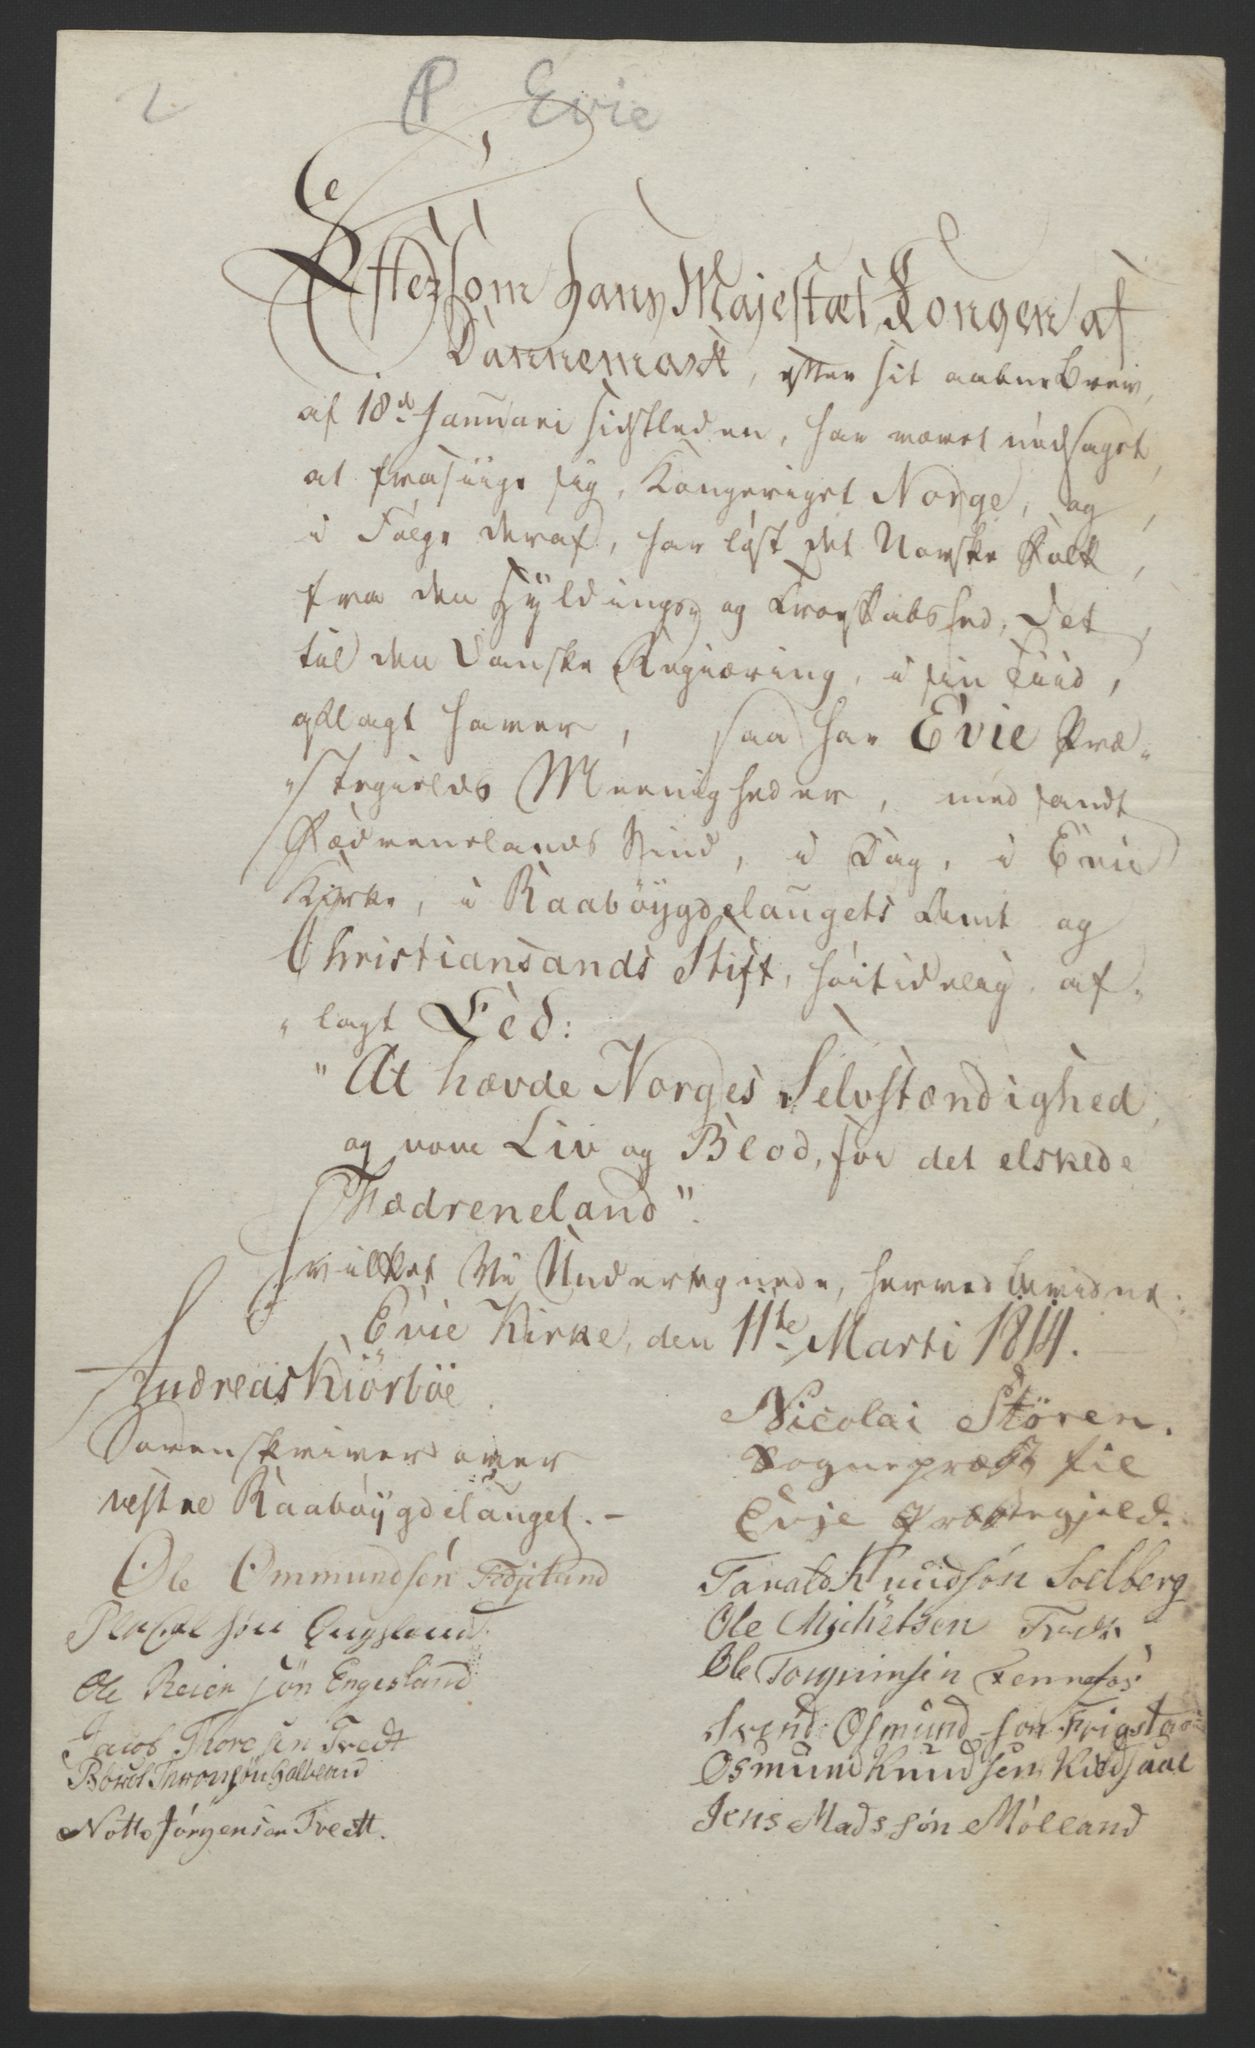 2 P Evie
Eftersom Hans Majestæt Kongen af
Dannemark, efter sit aabne Brev,
af 18d. Januari sidstleden, har været nødsaget,
at frasiige sig, Kongeriget Norge, og,
i Følge deraf, har løst det Norske Folk,
fra den Hyldings og Troeskabs Eed, det,
til den Danske Regiæring, i sin Tiid,
aflagt haver, saa har Evie Præ-
stegields Meenigheder, med sandt
Fædrenelands Sind, i Dag, i Evie
Kirke, i Raabøygdelaugets Amt og
Christiansands Stift, høitidelig af-
lagt Eed:
"At hævde Norges Selvstændighed,
og vove Liv og Blod, for det elskede
Fædreneland".
Hvilket Vi Undertegnede, herved bevidne.
Evie Kirke, den 11te Marti 1814.
Andreas Kiørboe
Sorenskriver over
vestre Raabøygdelauget.
Ole Ommundsen Fidjeland
Engsland
Ole Reiersøn Engesland
Jacob Thoresen Tvedt
Notto Jørgensen Tvedt.
Nicolai Støren.
Sognepræst til
Evje Præstegjeld.
Tarald Knudsøn Soelberg
Ole Michelsen
Ole Fennefos
Svend Osmundsøn Frigstad
Osmund Knudsen Kiedsaae
Jens Madssøn Mølland